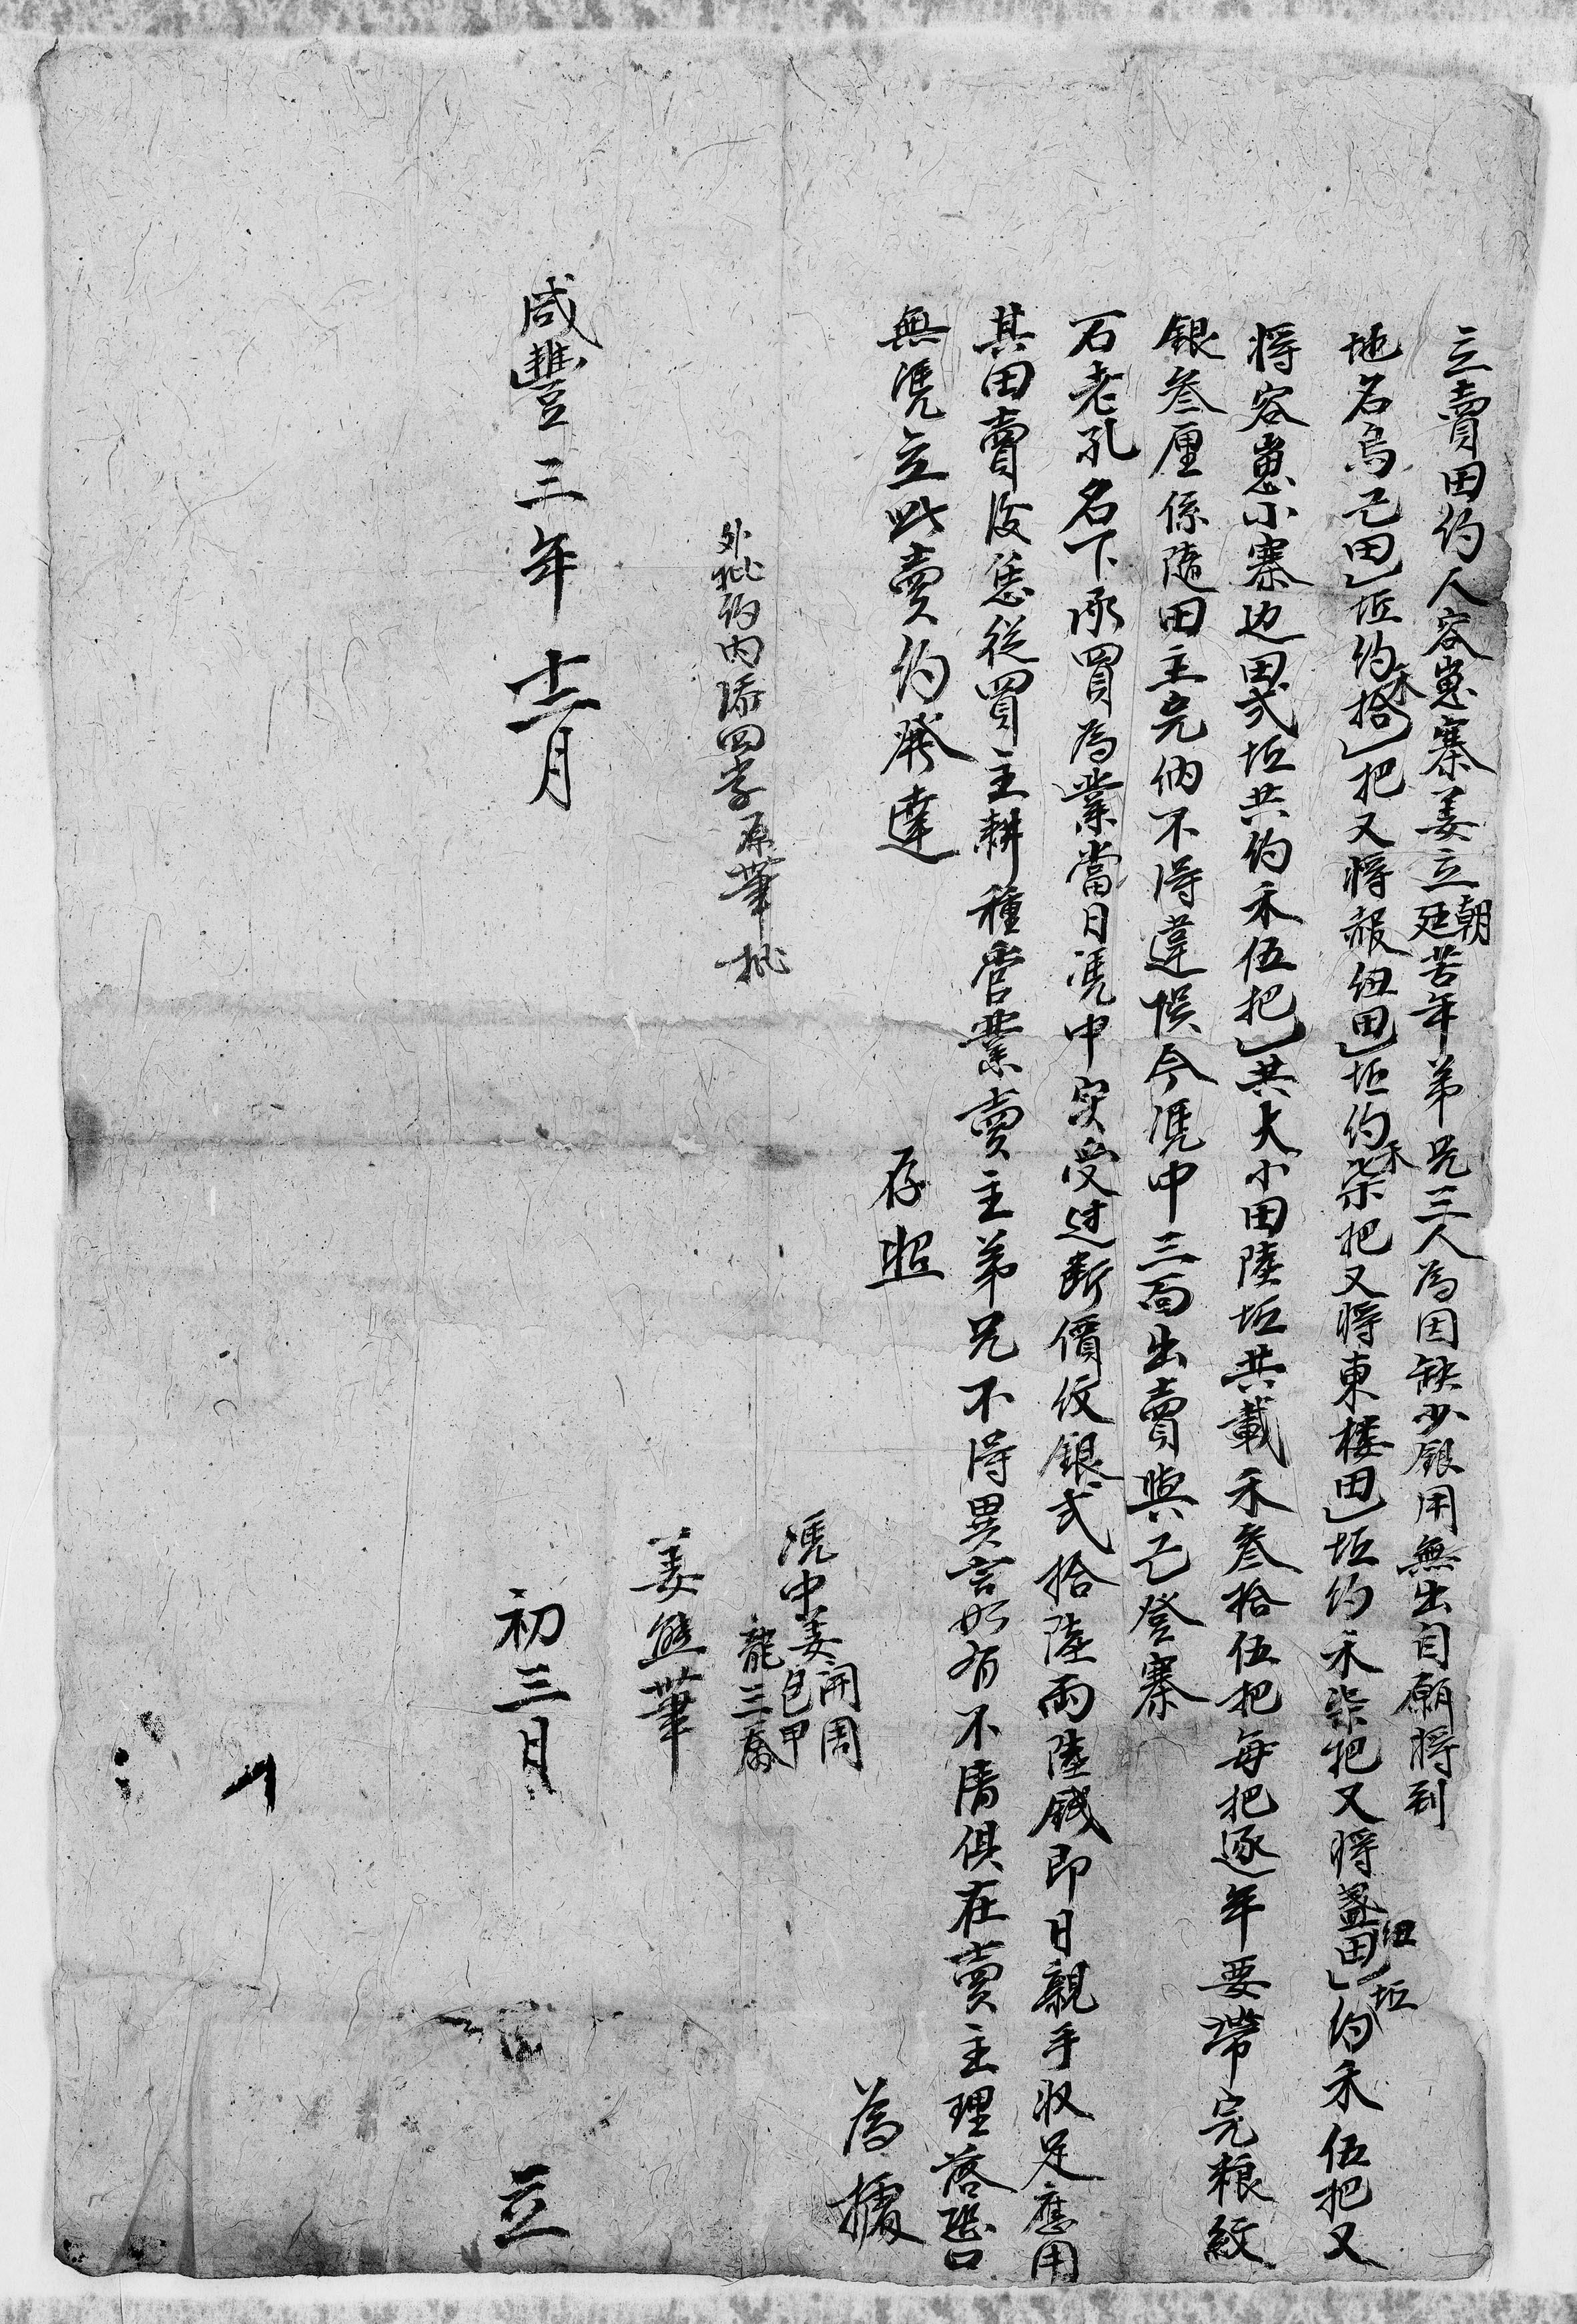 立賣田約人容嵬寨姜立朝廷苦年弟兄三人為因缺少銀用無出自願將到
地名烏己田一坵約禾拾一把又將報紐田一坵約禾柒把又將東樓田一坵約禾柒把又將盞紐田一坵約禾伍把又
將容嵬小寨边田弍坵共約禾伍把共大小田陸坵共載禾叁拾伍把每把逐年要帶完粮紋
銀叁厘係隨田主完納不得違悮今凴中三面出賣與己登寨
石老孔名下承買為業當日凴中实受过斷價纹銀弍拾陸兩陸錢即日親手収足應用
其田賣後恁從買主耕種管業賣主弟兄不得異言如有不清俱在賣主理落恐口
無凴立此賣約發達 存照 為據
外批約内添四字原筆批
凴中姜開周包甲
龍三喬
姜熊筆
咸豐三年十二月初三日 立